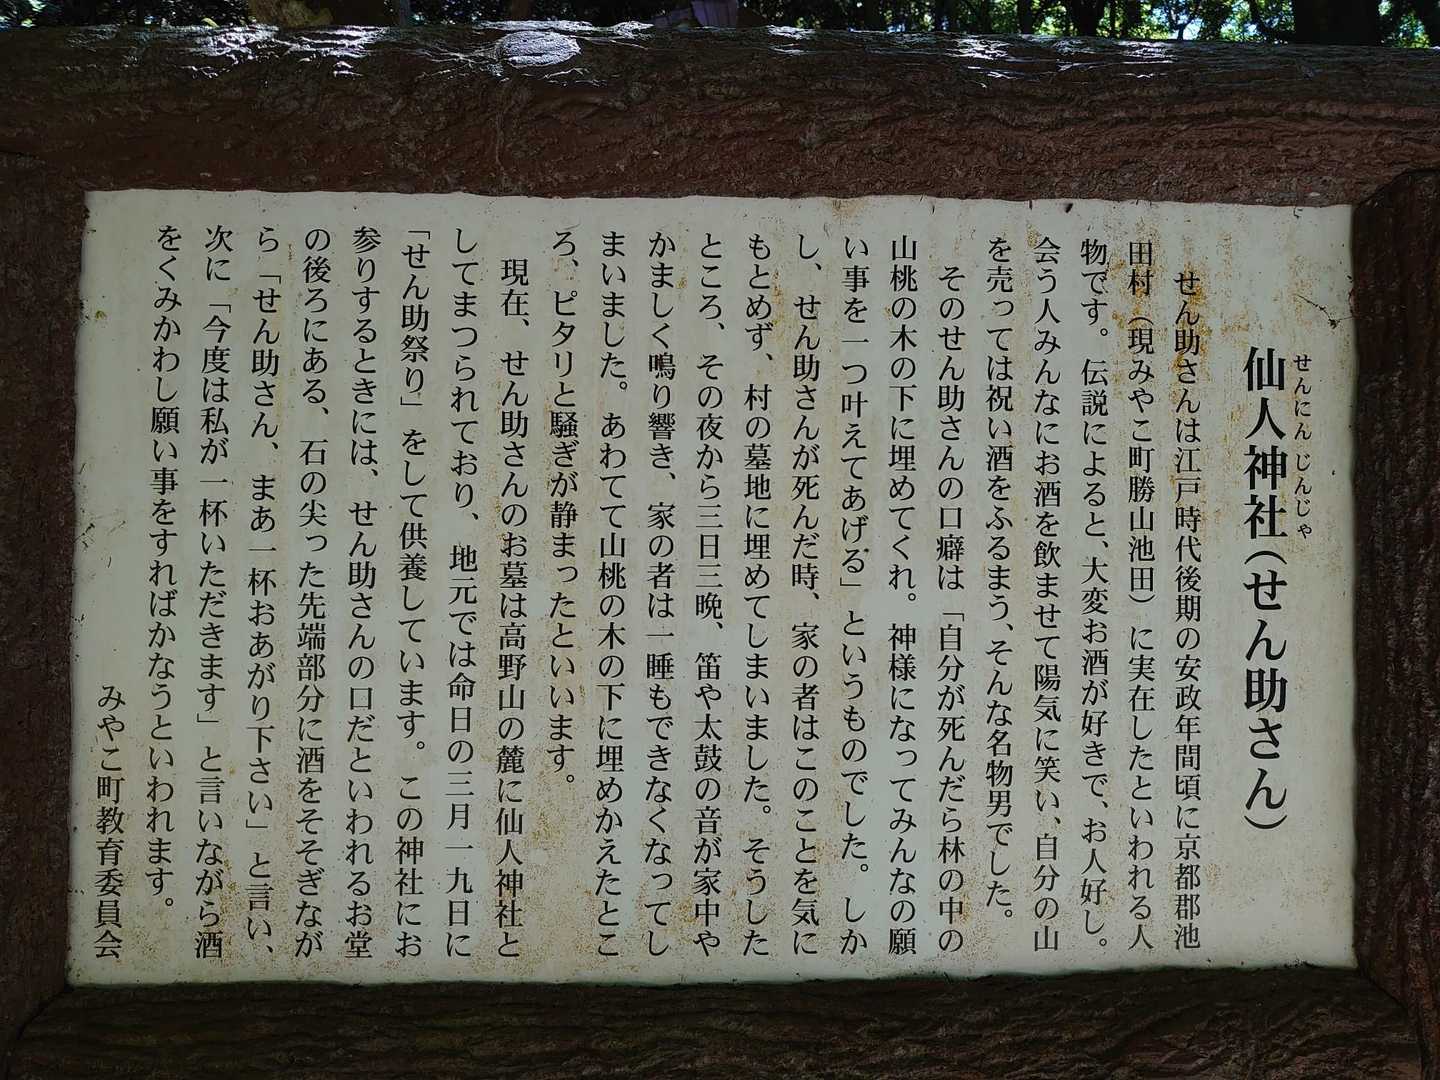 せんにんじんじゃ
仙人神社（せん助さん）
せん助さんは江戸時代後期の安政年間頃に京都郡池
田村（現みやこ町勝山池田）に実在したといわれる人
物です。伝説によると、大変お酒が好きで、お人好し。
会う人みんなにお酒を飲ませて陽気に笑い、自分の山
を売っては祝い酒をふるまう、そんな名物男でした。
そのせん助さんの口癖は「自分が死んだら林の中の
山桃の木の下に埋めてくれ。神様になってみんなの願
い事を一つ叶えてあげる」というものでした。しか
し、せん助さんが死んだ時、家の者はこのことを気に
もとめず、村の墓地に埋めてしまいました。そうした
ところ、その夜から三日三晩、笛や太鼓の音が家中や
かましく鳴り響き、家の者は一睡もできなくなってし
まいました。あわてて山桃の木の下に埋めかえたとこ
ろ、ピタリと騒ぎが静まったといいます。
現在、せん助さんのお墓は高野山の麓に仙人神社と
してまつられており、地元では命日の三月一九日に
「せん助祭り」をして供養しています。この神社にお
参りするときには、せん助さんの口だといわれるお堂
の後ろにある、石の尖った先端部分に酒をそそぎなが
ら「せん助さん、まあ一杯おあがり下さい」と言い、
次に「今度は私が一杯いただきます」と言いながら酒
をくみかわし願い事をすればかなうといわれます。
みやこ町教育委員会